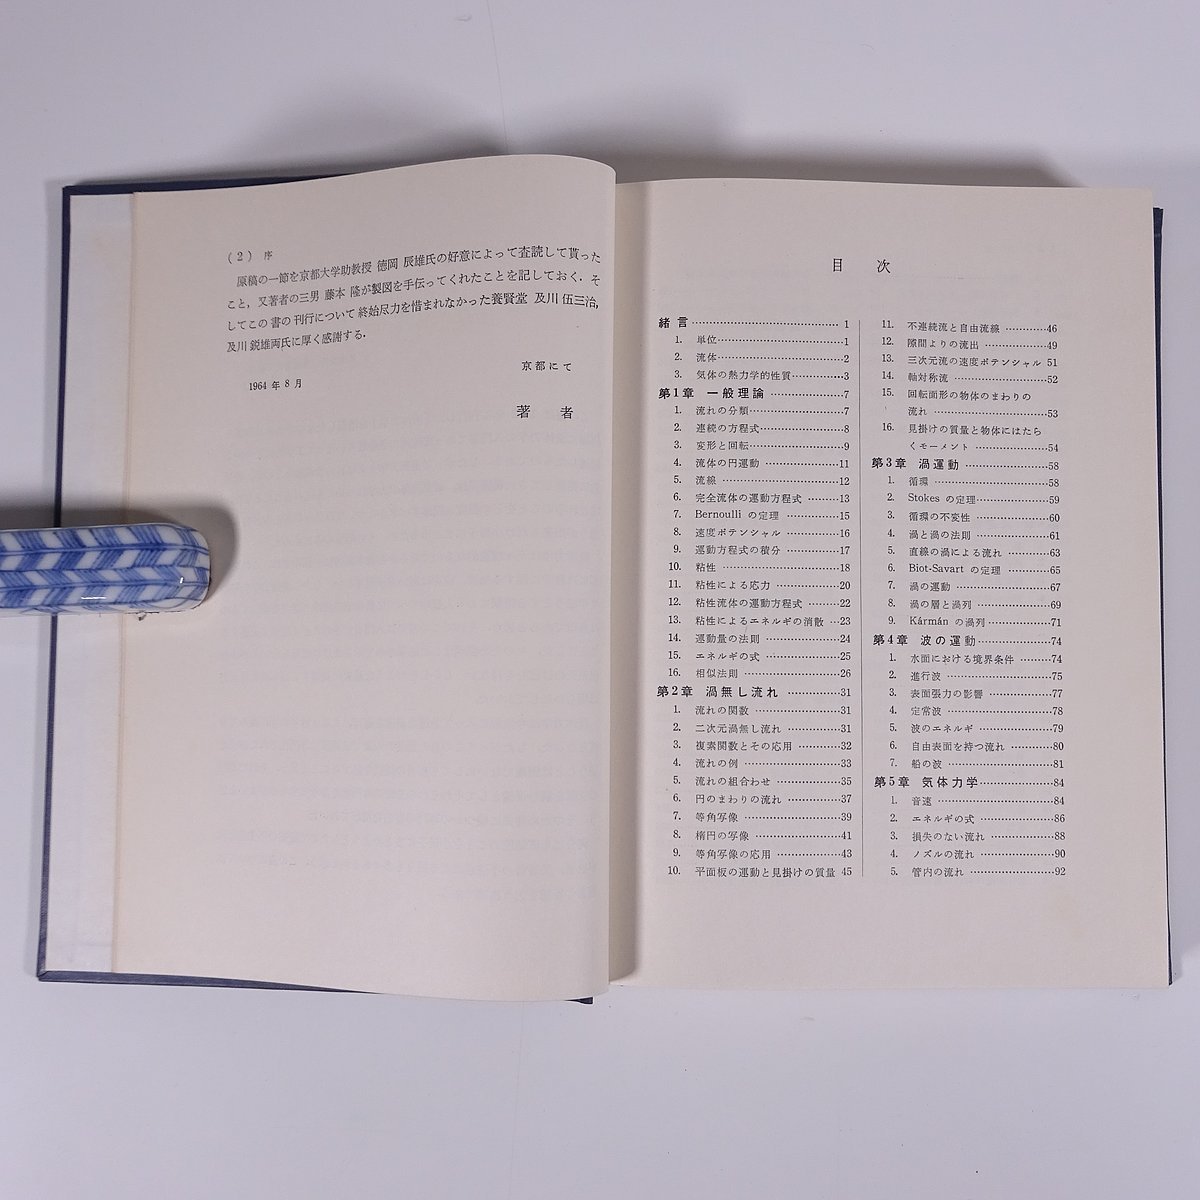 (2) 序
原稿の一節を京都大学助教授 徳岡 辰雄氏の好意によって査読して貰った
こと，又著者の三男 藤本 隆が製図を手伝ってくれたことを記しておく．そ
してこの 書の 刊行について 終始尽力を惜まれなかった 養賢堂 及川 伍三治，
及川 鋭雄両氏に厚く感謝する．
京都にて
1964 年 8 月
著 者
目 次
緒言 1
1. 単位 1
2. 流体 2
3. 気体の熱力学的性質 3
第1章 一般理論 7
1. 流れの分類 7
2. 連続の方程式 8
3. 変形と回転 9
4. 流体の円運動 11
5. 流線 12
6. 完全流体の運動方程式 13
7. Bernoulli の定理 15
8. 速度ポテンシャル 16
9. 運動方程式の積分 17
10. 粘性 18
11. 粘性による応力 20
12. 粘性流体の運動方程式 22
13. 粘性によるエネルギの消散 23
14. 運動量の法則 24
15. エネルギの式 25
16. 相似法則 26
第2章 渦無し流れ 31
1. 流れの関数 31
2. 二次元渦無し流れ 31
3. 複素関数とその応用 32
4. 流れの例 33
5. 流れの組合わせ 35
6. 円のまわりの流れ 37
7. 等角写像 39
8. 楕円の写像 41
9. 等角写像の応用 43
10. 平面板の運動と見掛けの質量 45
11. 不連続流と自由流線 46
12. 隙間よりの流出 49
13. 三次元流の速度ポテンシャル 51
14. 軸対称流 52
15. 回転面形の物体のまわりの
流れ 53
16. 見掛けの質量と物体にはたら
くモーメント 54
第3章 渦運動 58
1. 循環 58
2. Stokes の定理 59
3. 循環の不変性 60
4. 渦と渦の法則 61
5. 直線の渦による流れ 63
6. Biot-Savart の定理 65
7. 渦の運動 67
8. 渦の層と渦列 69
9. Kármán の渦列 71
第4章 波の運動 74
1. 水面における境界条件 74
2. 進行波 75
3. 表面張力の影響 77
4. 定常波 78
5. 波のエネルギ 79
6. 自由表面を持つ流れ 80
7. 船の波 81
第5章 気体力学 84
1. 音速 84
2. エネルギの式 86
3. 損失のない流れ 88
4. ノズルの流れ 90
5. 管内の流れ 92